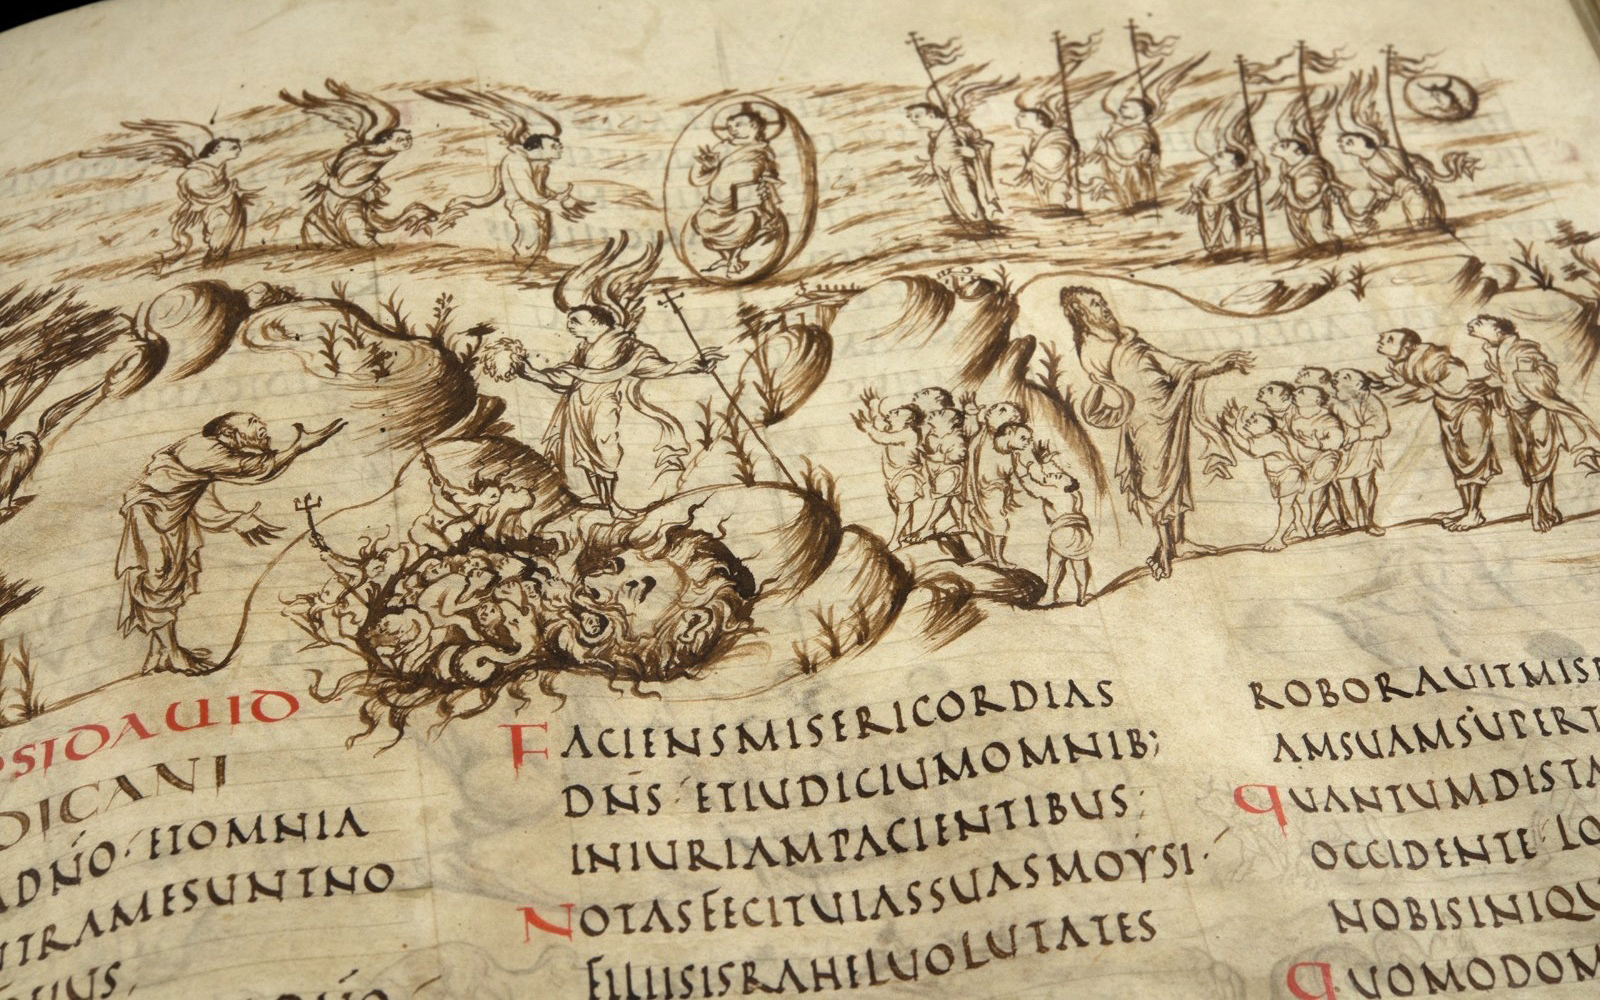 SIDAUID
DICANI
ADNO·ETOMNIA
NTRAMESUNTNO
EIUS.
FACIENSMISERICORDIAS
DNS·ETIUDICIUMOMNIB;
INIURIAMPACIENTIBUS:
NOTASFECITUIASSUASMOYSI·
FILIISISRAHELUOLUTATES
ROBORAUITMISE
AMSUAMSUPERT
QUANTUMDISTA
OCCIDENTE·LO
NOBISINIQU
QUOMODOM